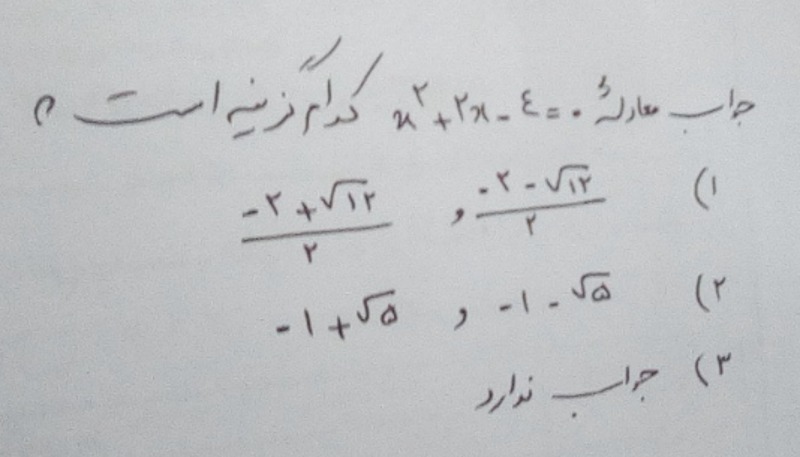 جواب معادلهٔ x² + ۲x - ٤ = ۰ کدام گزینه است ؟
۱) (-۲ - √۱۲)/۲ و (-۲ + √۱۲)/۲
۲) -۱ - √۵ و -۱ + √۵
۳) جواب ندارد